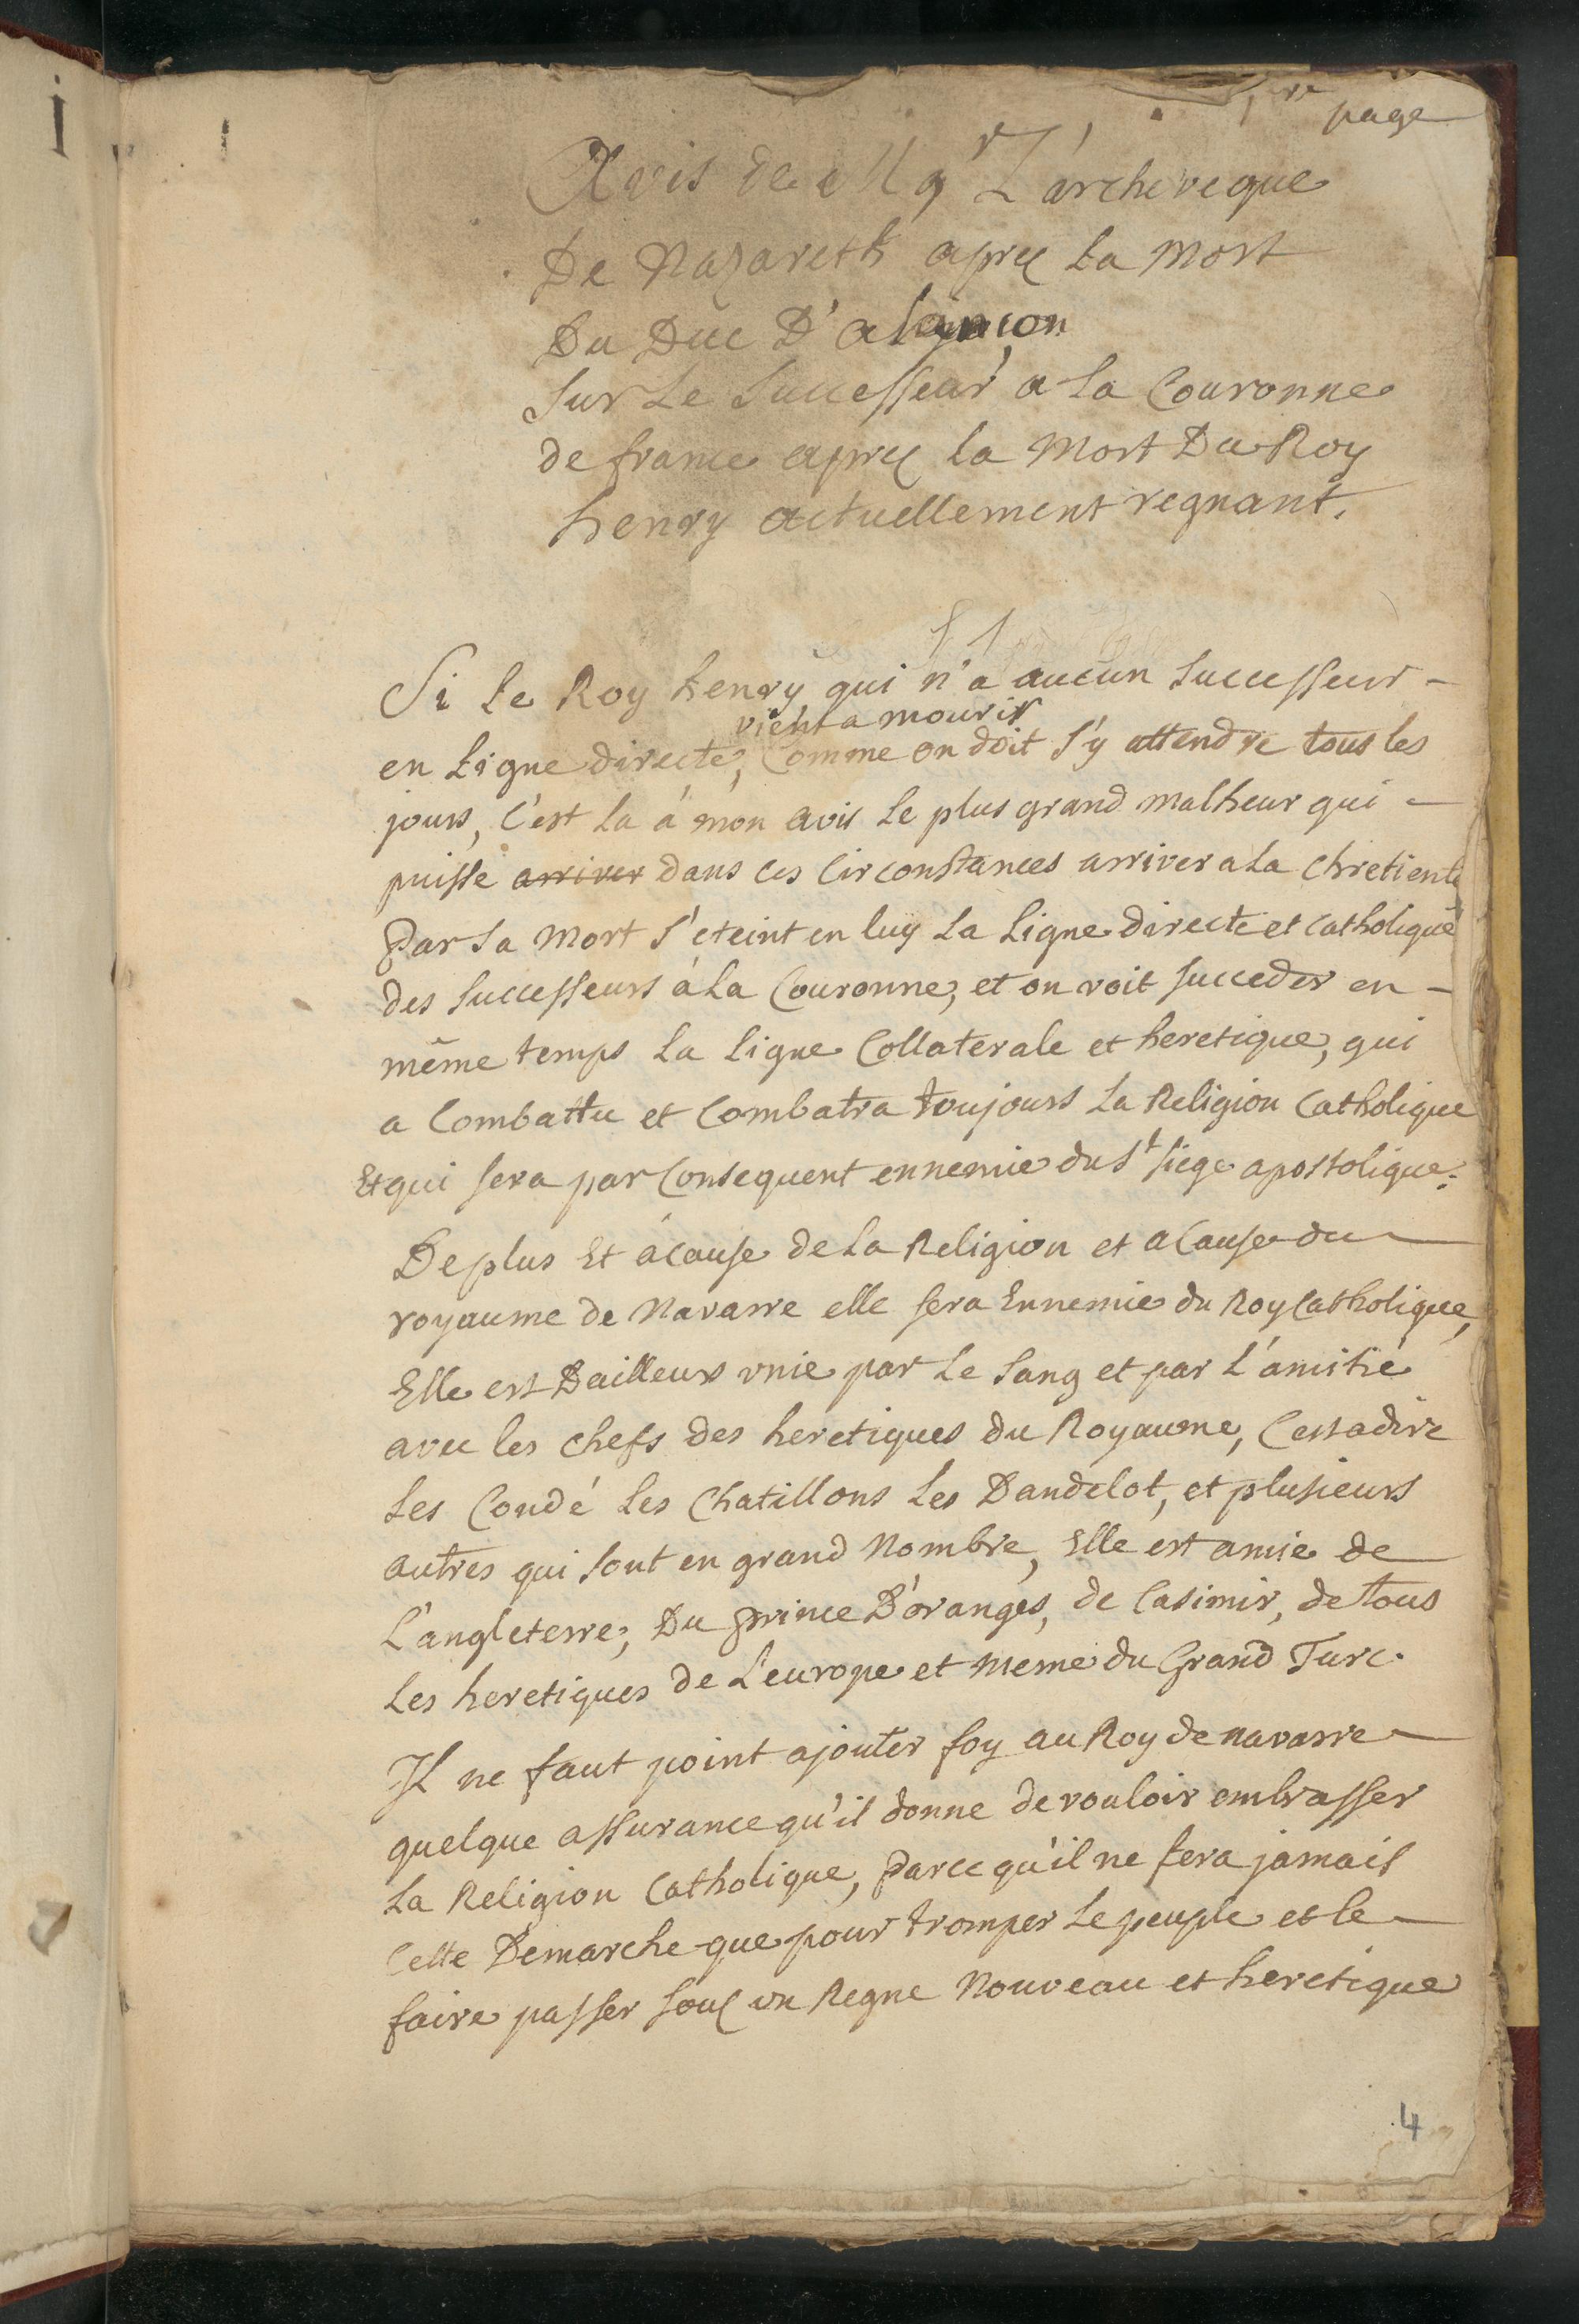 1re page
Avis de Mgr L'archeveque
De Nazareth aprés La Mort
Du Duc D'alançon
Sur Le Successeur a La Couronne
de france aprés La Mort Du Roy
henry actuellement regnant.
Si Le Roy henry qui n'a aucun Successeur -
vient a mourir
en Ligne directe, Comme on doit s'y attendre tous les
jours, C'est La à mon avis Le plus grand malheur qui -
puisse arriver dans ces Circonstances arriver a La Chretienté
Par Sa Mort s'eteint en luy La Ligne directe et Catholique
des Successeurs à La Couronne, et on voit succeder en -
même temps La ligne Collaterale et heretique, qui
a Combattu et Combatra toujours La Religion Catholique
Et qui sera par Consequent ennemie du St siege apostolique.
De plus Et à cause de La Religion et a Cause du
royaume de Navarre elle sera Ennemie du Roy Catholique,
Elle est Dailleurs unie par Le Sang et par L'amitié
avec les chefs des heretiques du Royaume, Cestadire
Les Condé Les Chatillons Les Dandelot, et plusieurs
autres qui sont en grand Nombre, Elle est amie de
L'angleterre, Du prince D'oranges, de Casimir, de tous
Les heretiques de L'europe et meme du Grand Turc.
Il ne faut point ajouter foy au Roy de navarre
quelque assurance qu'il donne de vouloir embrasser
La Religion Catholique, Parce qu'il ne fera jamais
Cette Demarche que pour tromper Le peuple et le
faire passer sous un Regne Nouveau et heretique
4